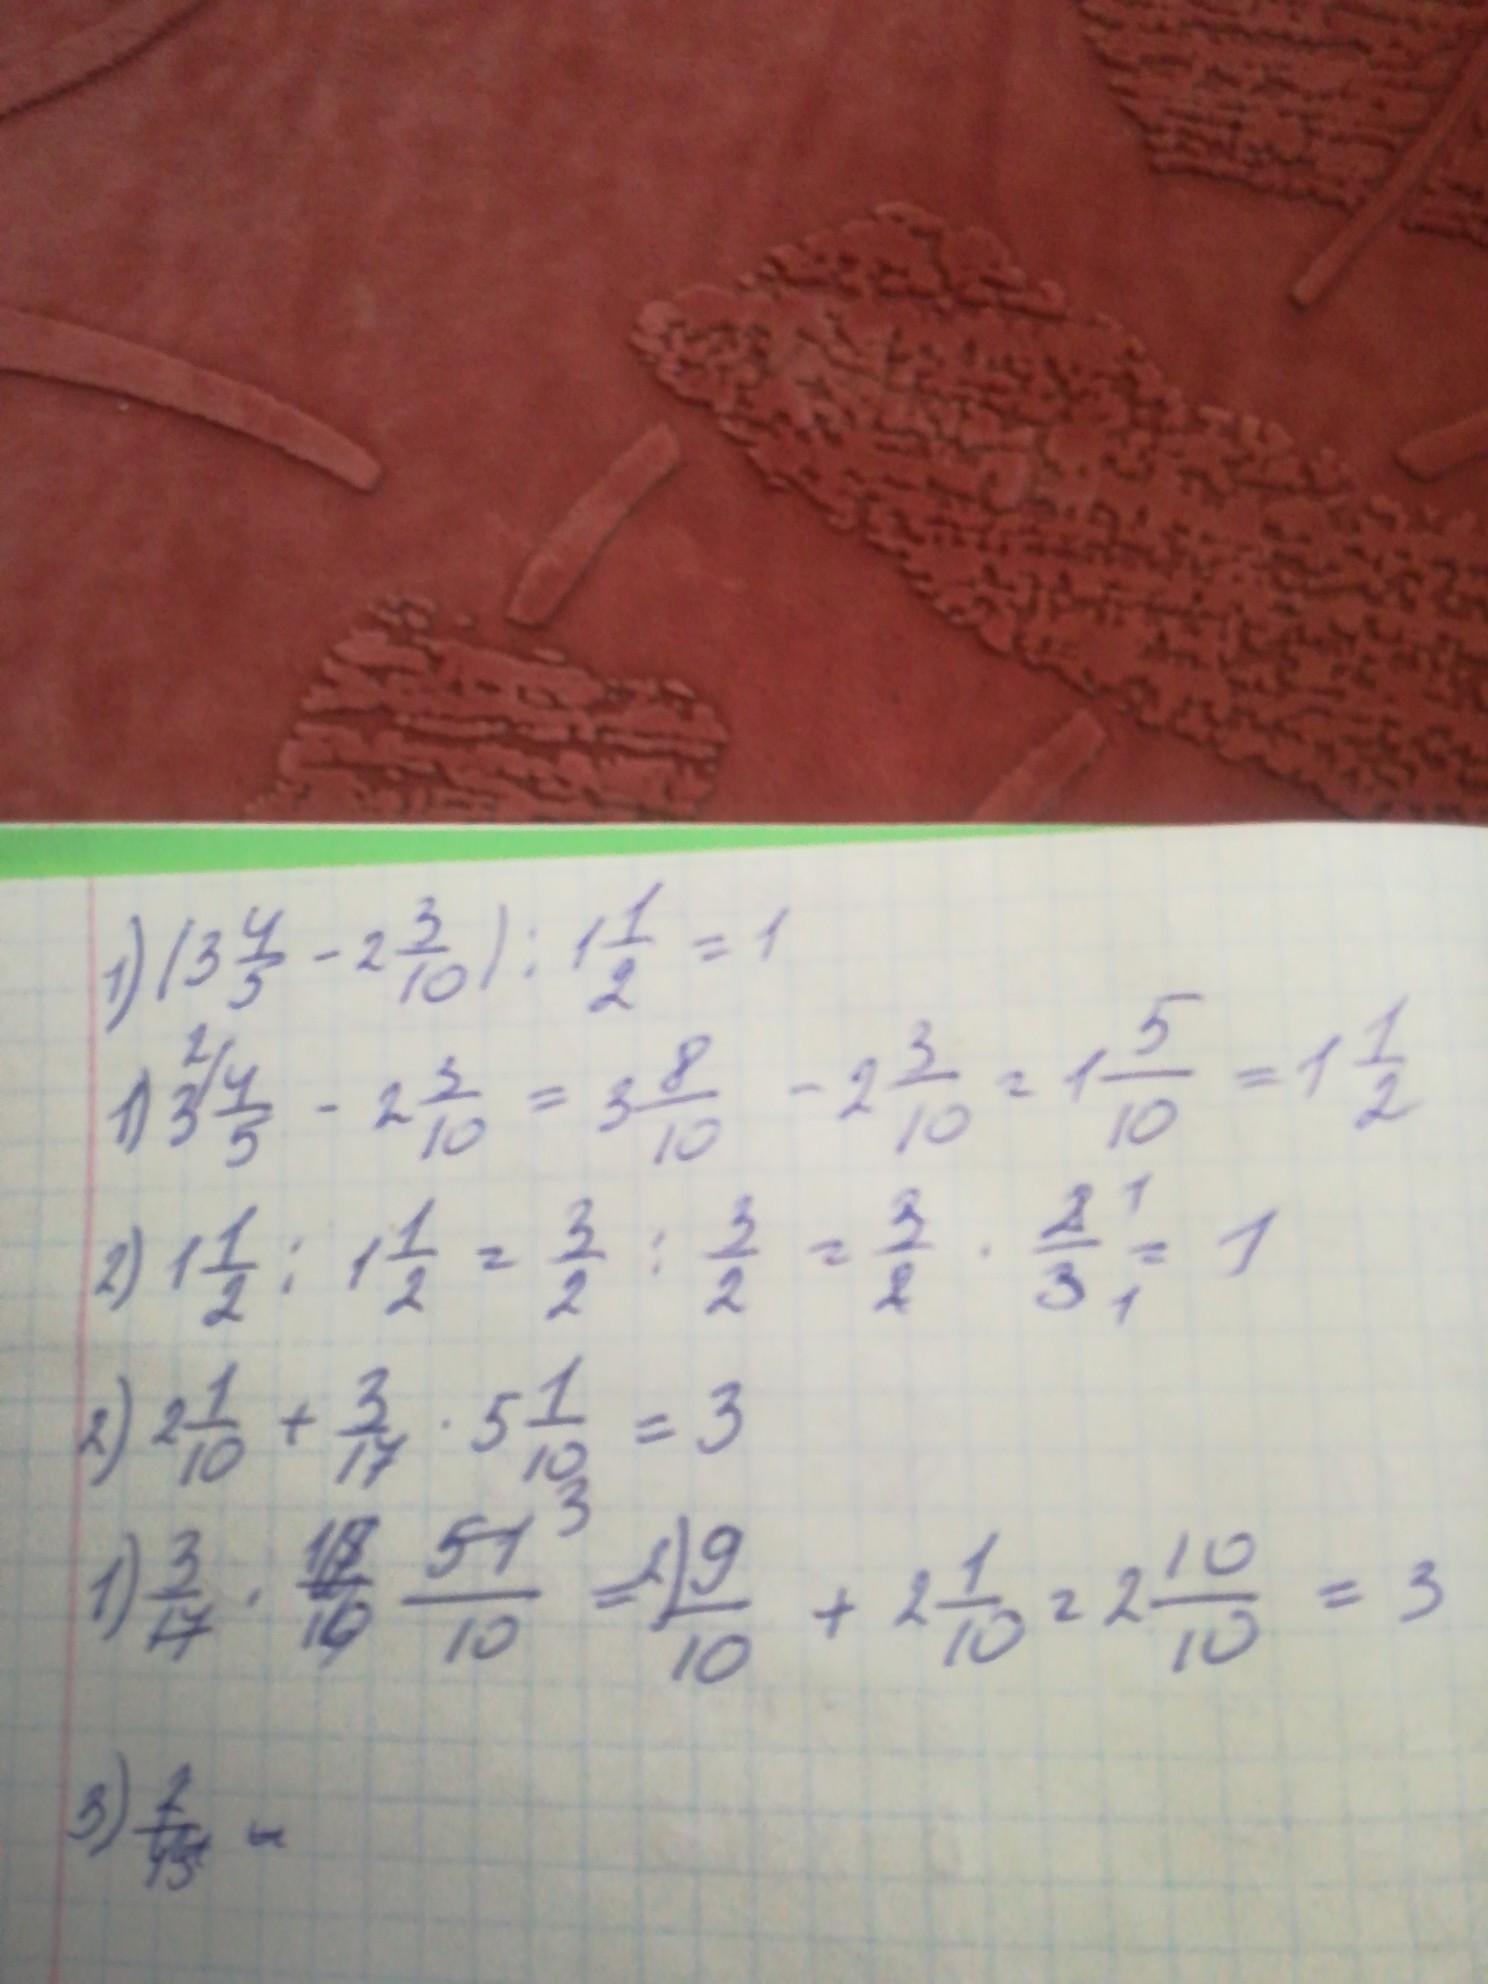 1) (3 4/5 - 2 3/10) : 1 1/2 = 1
1) 3 2/ 4/5 - 2 3/10 = 3 8/10 - 2 3/10 = 1 5/10 = 1 1/2
2) 1 1/2 : 1 1/2 = 3/2 : 3/2 = 3/2 · 2/3 1 1 = 1
2) 2 1/10 + 3/17 · 5 1/10 = 3
1) 3/17 · 51/10 3 = 2) 9/10 + 2 1/10 = 2 10/10 = 3
3)